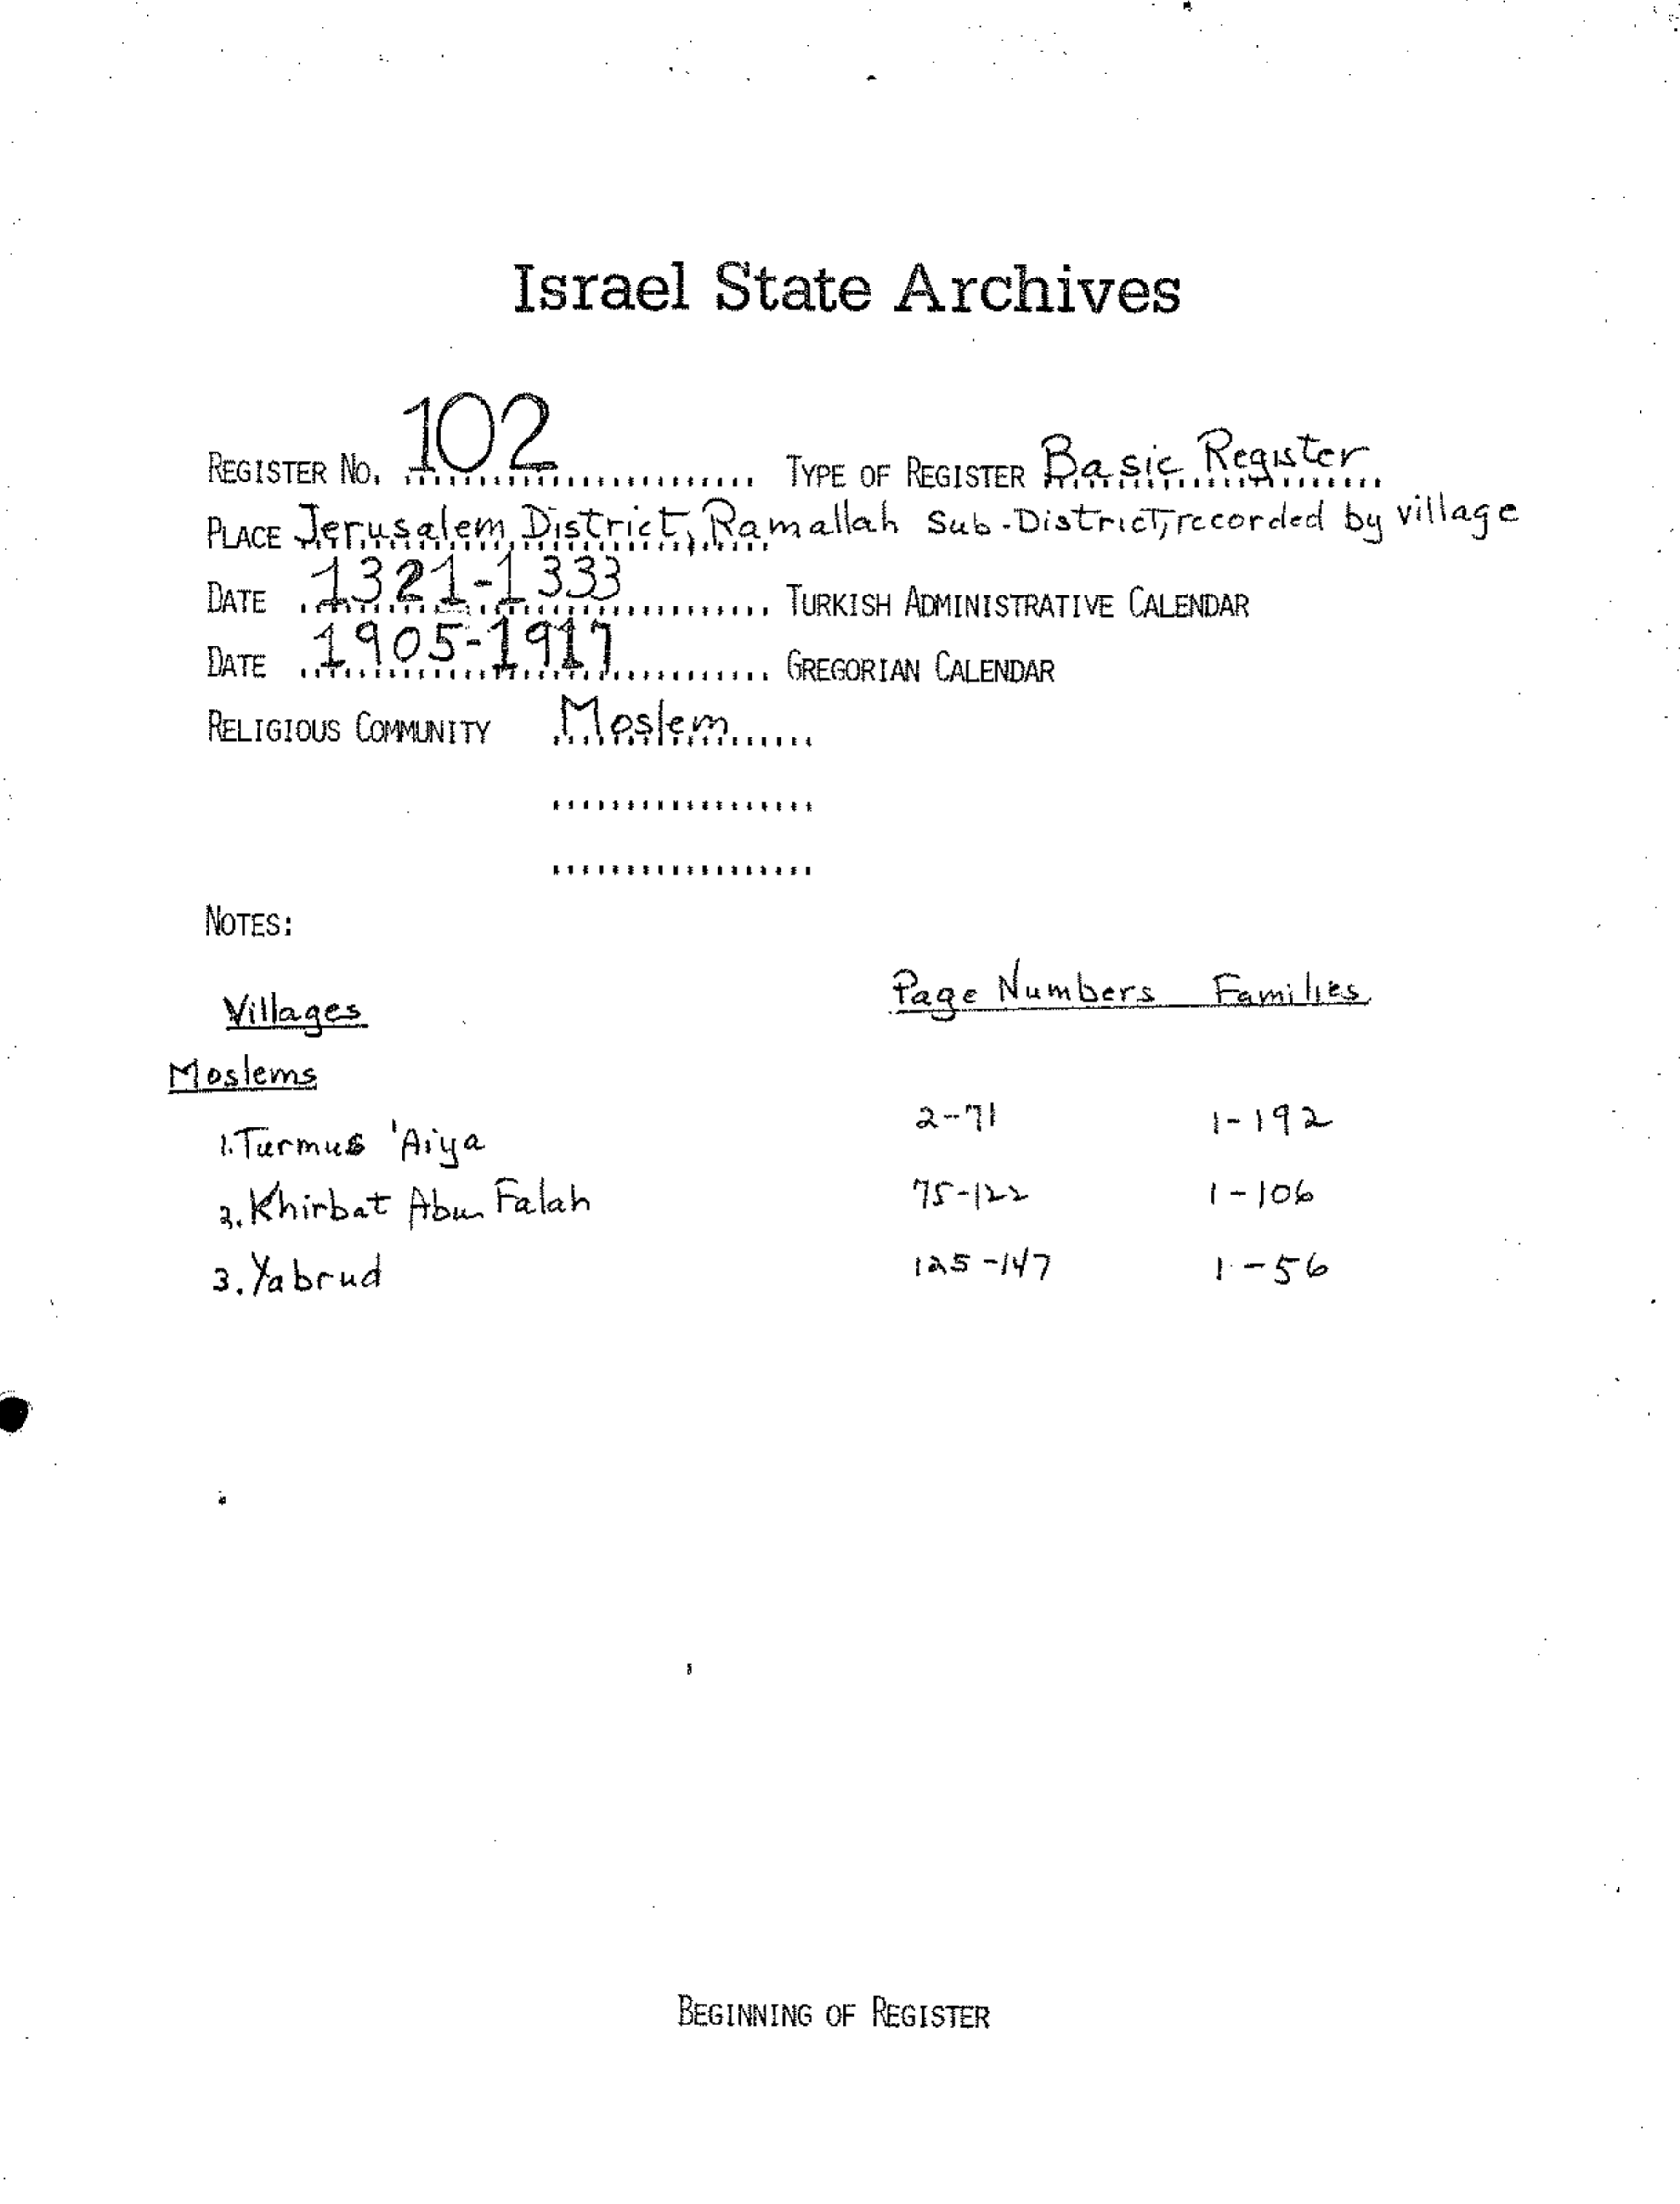 Israel State Archives
REGISTER NO. 102 TYPE OF REGISTER Basic Register
PLACE Jerusalem District, Ramallah Sub-District, recorded by village
DATE 1321-1333 TURKISH ADMINISTRATIVE CALENDAR
DATE 1905-1917 GREGORIAN CALENDAR
RELIGIOUS COMMUNITY Moslem
NOTES:
Villages Page Numbers Families
Moslems
1. Turmus 'Aiya 2-71 1-192
2. Khirbat Abu Falah 75-122 1-106
3. Yabrud 125-147 1-56
BEGINNING OF REGISTER